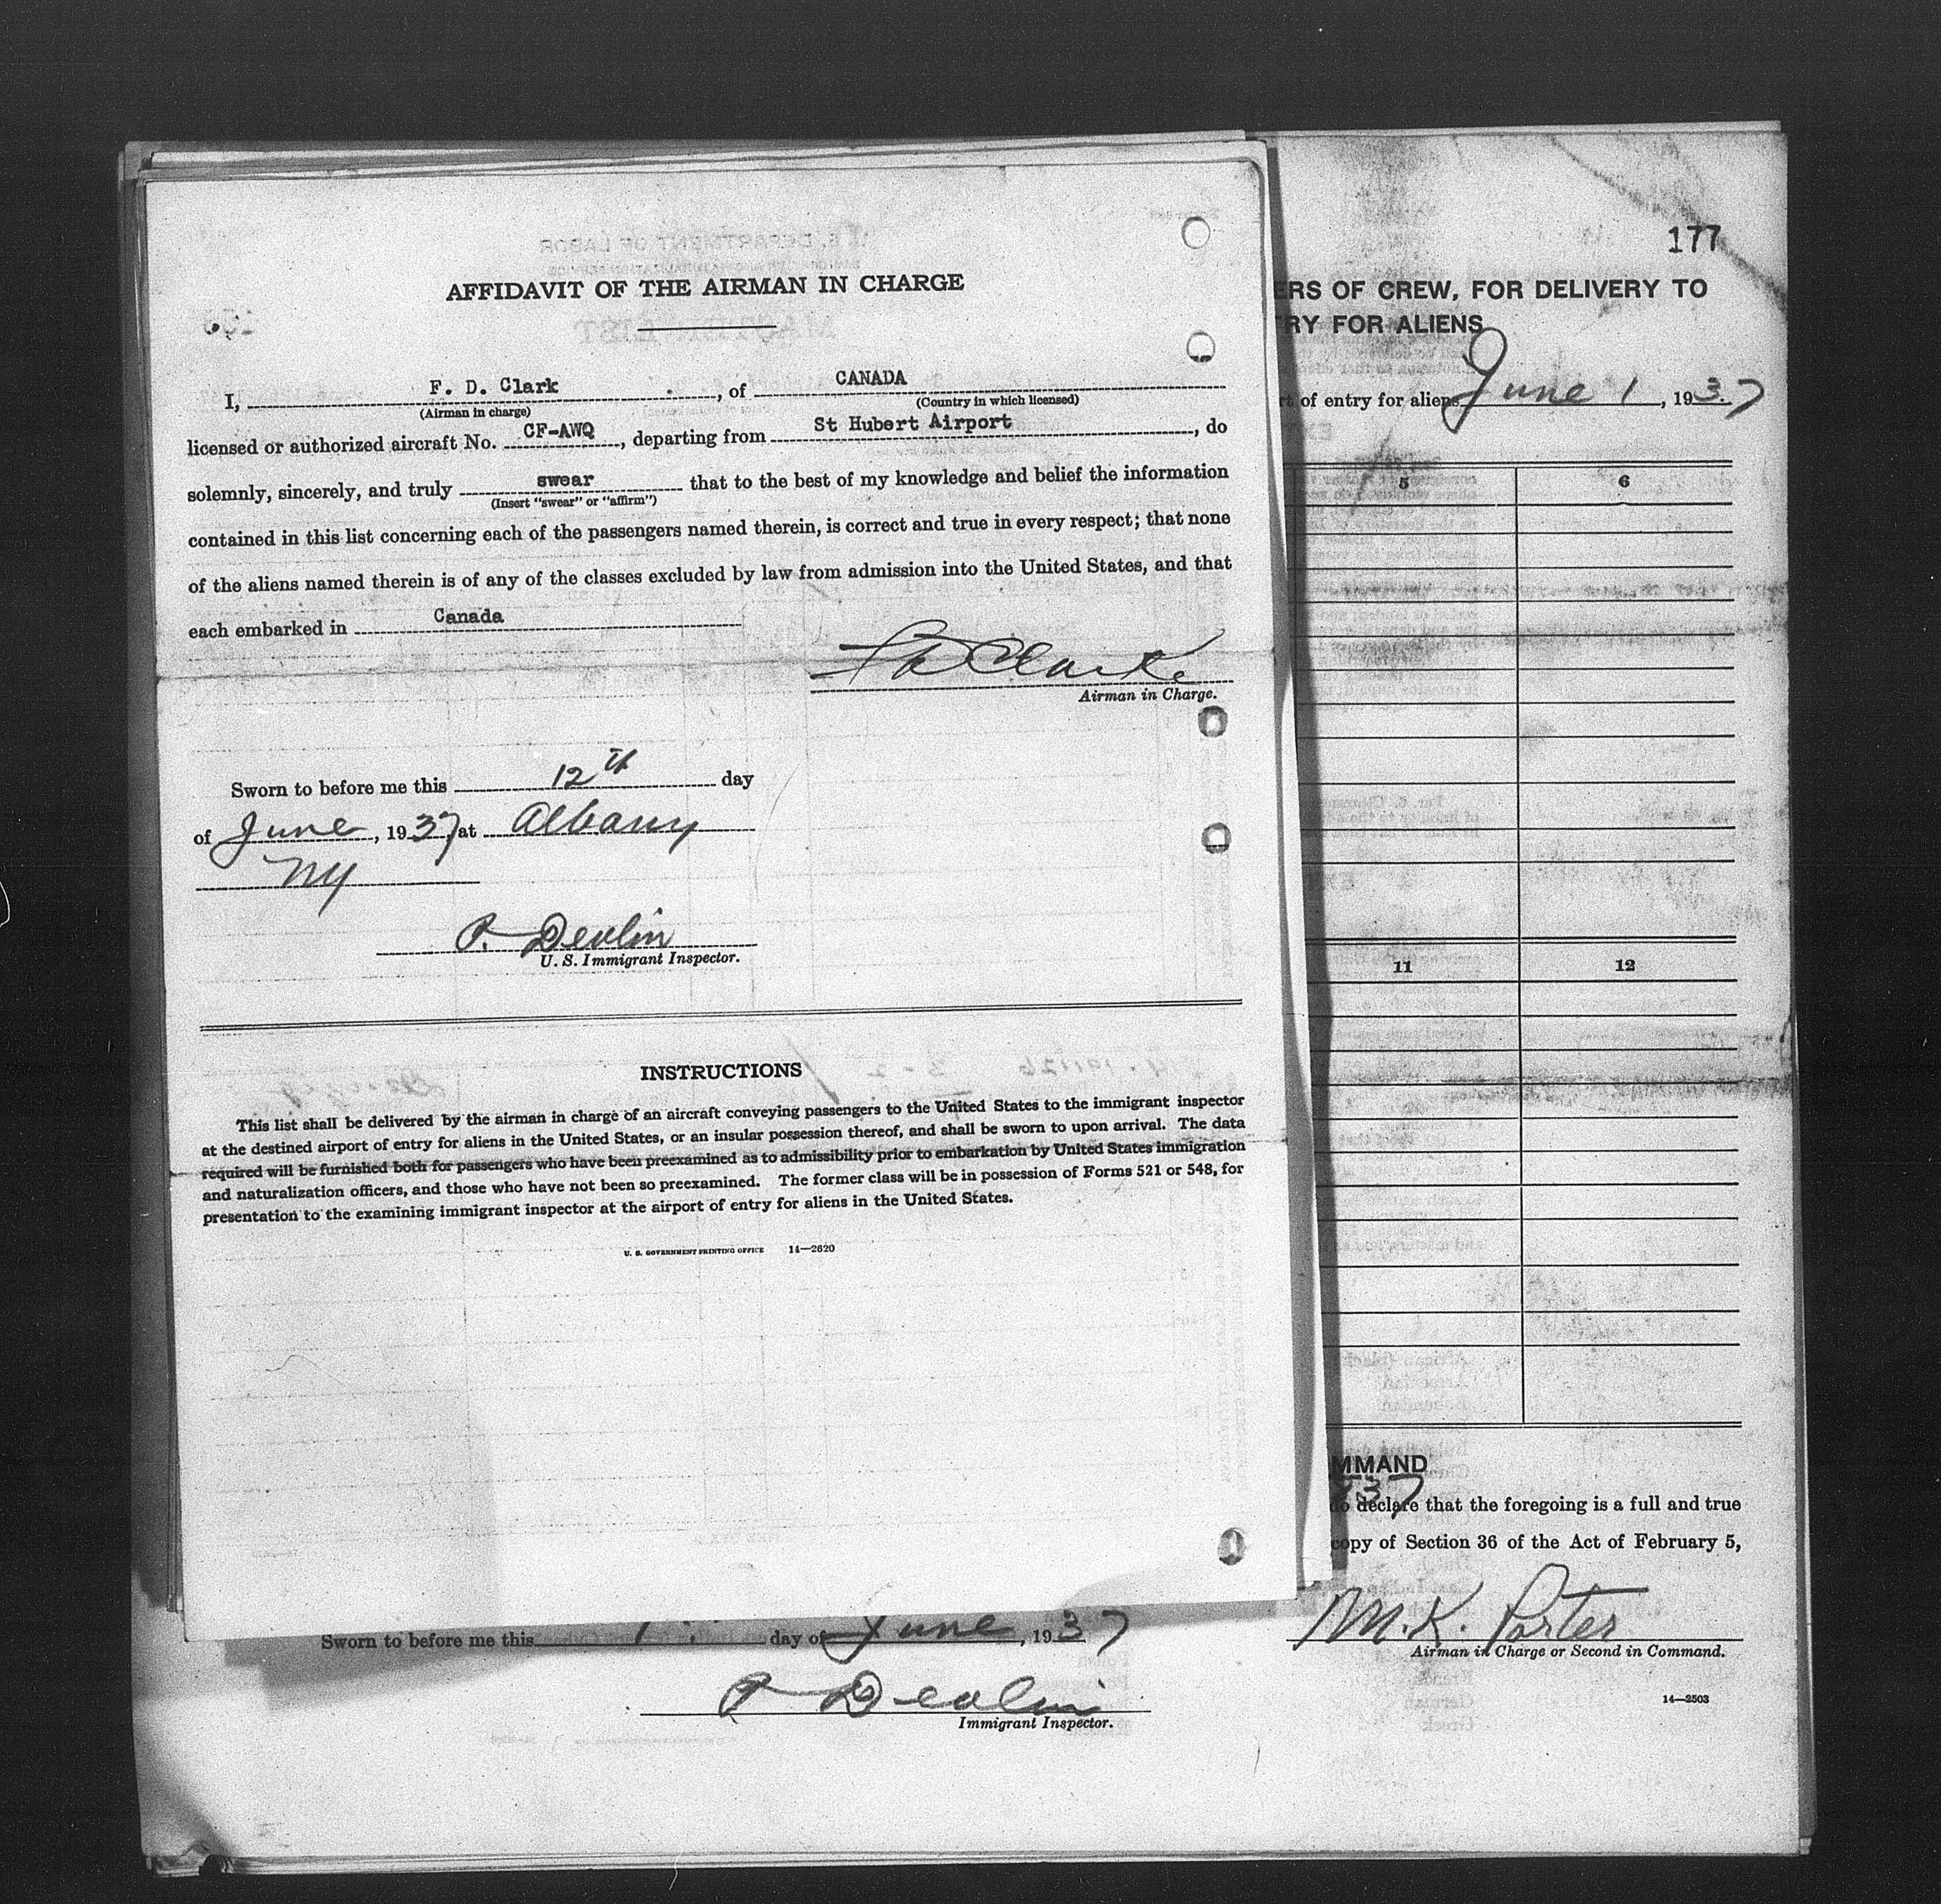 AFFIDAVIT OF THE AIRMAN IN CHARGE
I, F. D. Clark, of CANADA
(Airman in charge) (Country in which licensed)
licensed or authorized aircraft No. CF-AWQ, departing from St Hubert Airport, do
solemnly, sincerely, and truly swear that to the best of my knowledge and belief the information
(Insert "swear" or "affirm")
contained in this list concerning each of the passengers named therein, is correct and true in every respect; that none
of the aliens named therein is of any of the classes excluded by law from admission into the United States, and that
each embarked in Canada
F D Clarke
Airman in Charge.
Sworn to before me this 12th day
of June, 1937, at Albany
NY
P. Devlin
U. S. Immigrant Inspector.
INSTRUCTIONS
This list shall be delivered by the airman in charge of an aircraft conveying passengers to the United States to the immigrant inspector
at the destined airport of entry for aliens in the United States, or an insular possession thereof, and shall be sworn to upon arrival. The data
required will be furnished both for passengers who have been preexamined as to admissibility prior to embarkation by United States immigration
and naturalization officers, and those who have not been so preexamined. The former class will be in possession of Forms 521 or 548, for
presentation to the examining immigrant inspector at the airport of entry for aliens in the United States.
U. S. GOVERNMENT PRINTING OFFICE 14—2620
177
ERS OF CREW, FOR DELIVERY TO
RY FOR ALIENS
of entry for aliens June 1, 1937
5 6
11 12
MMAND
37
do declare that the foregoing is a full and true
copy of Section 36 of the Act of February 5,
M. K. Porter
Airman in Charge or Second in Command.
14—2503
Sworn to before me this 1 day of June, 1937
P Devlin
Immigrant Inspector.